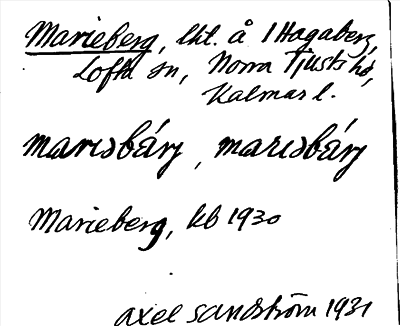 Marieberg, lht. å 1 Hagaberg,
Lofta sn, Norra Tjusts hd,
Kalmar l.
marıɔbárj, marıɔbárj
Marieberg, kb 1930
axel sandström 1931